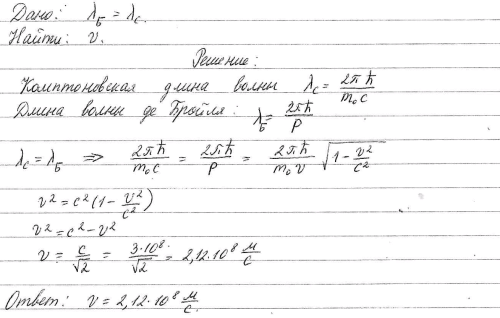 Дано: λ_Б = λ_C.
Найти: v.
Решение:
Комптоновская длина волны λ_C = 2πħ/m₀c
Длина волны де Бройля: λ_Б = 2πħ/p
λ_C = λ_Б ⇒ 2πħ/m₀c = 2πħ/p = 2πħ/m₀v √(1 - v²/c²)
v² = c²(1 - v²/c²)
v² = c² - v²
v = c/√2 = 3·10⁸/√2 = 2,12·10⁸ м/с
Ответ: v = 2,12·10⁸ м/с.